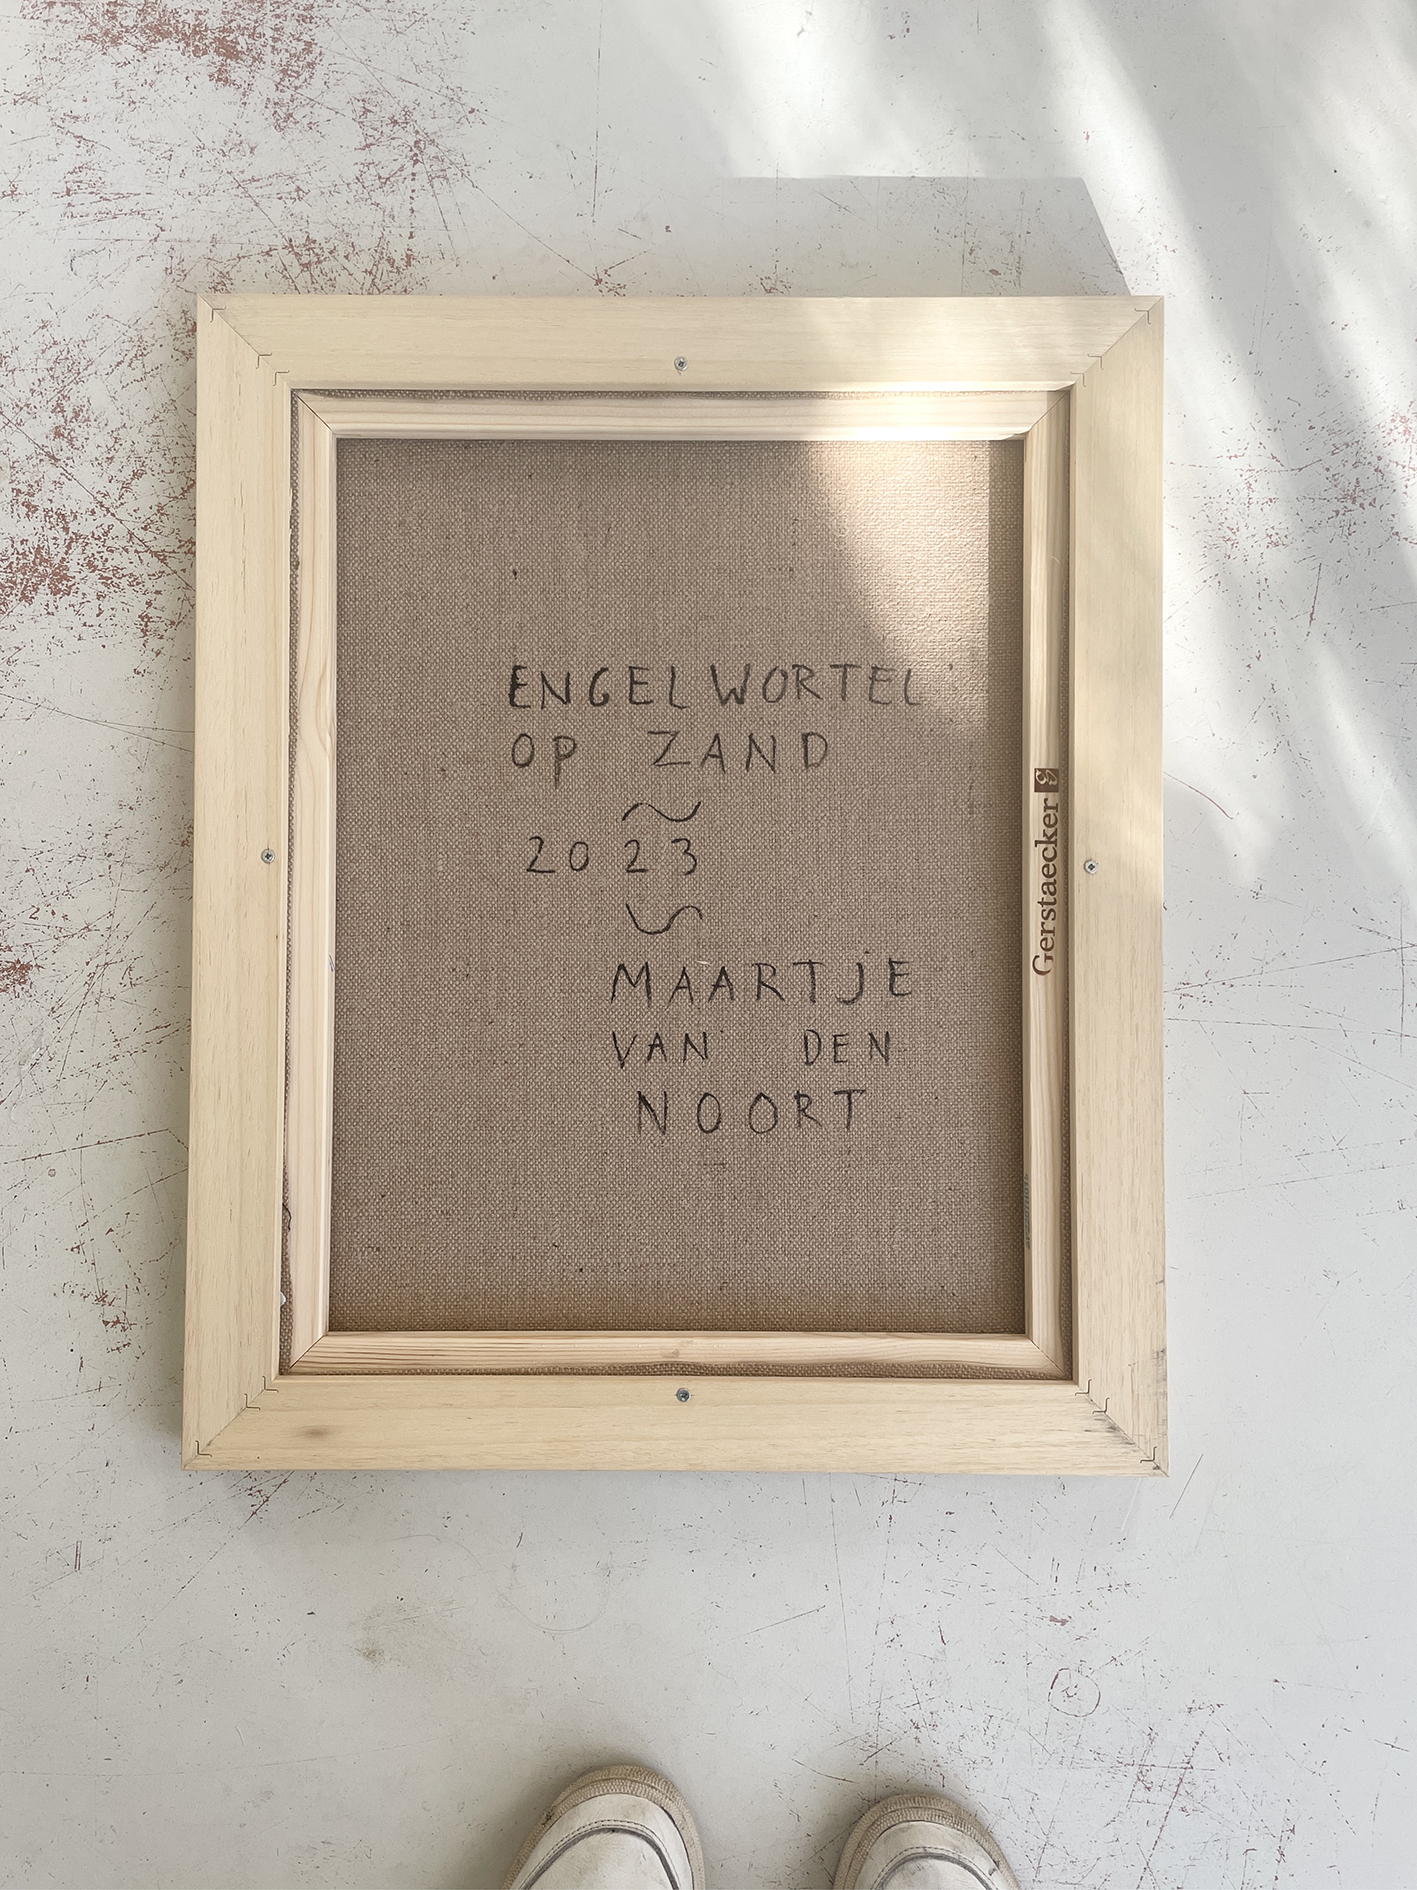 ENGELWORTEL
OP ZAND
~
2023
~
MAARTJE
VAN DEN
NOORT
Gerstaecker